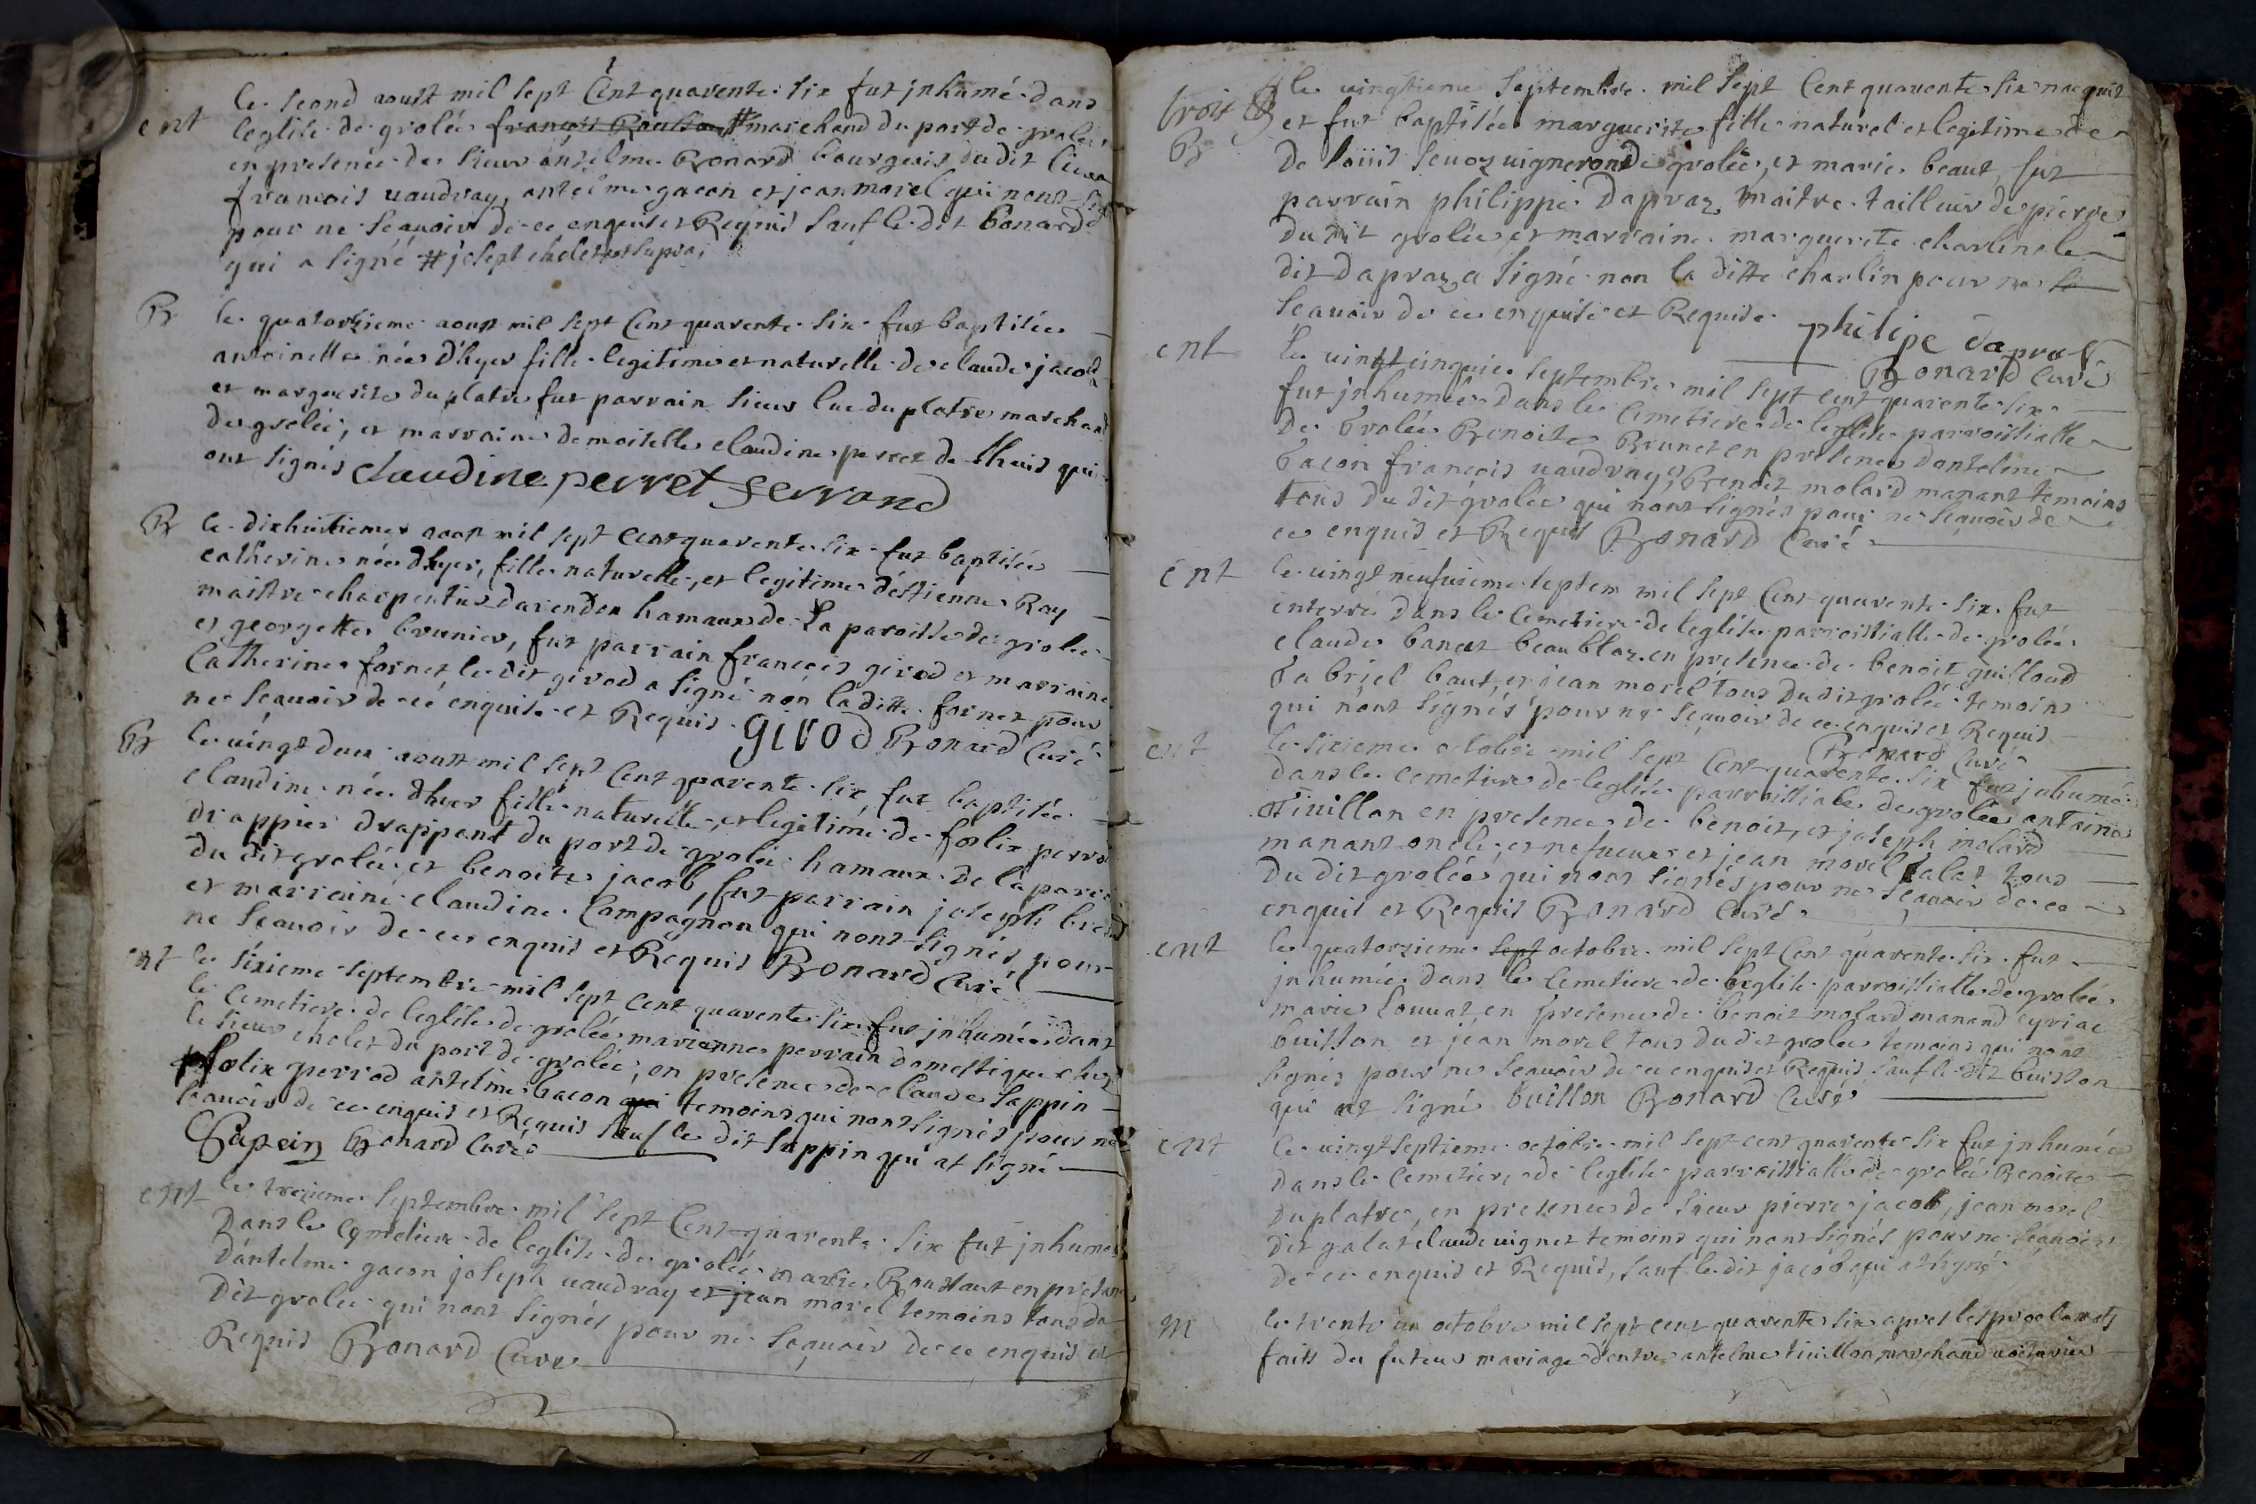 le second aoust mil sept Cent quarente six fut jnhumé dans
ent leglise de grolée françois # marchand du port de grolée,
en presence de sieur antelme Bonard bourgeois du dit lieu
francois uaudray, antelme gacon et jean morel qui nont
pour ne sçauoir de ce enquis et Requis sauf le dit bonard
qui a signé # josept cholet ut supra,
B le quatorzieme aoust mil sept Cent quarente six fut baptisée
antoinette née d'hyer fille legitime et naturelle de claude jacob
et marguerite duplatre fut parrain sieur luc duplatre marchand
de grolée, et marraine demoiselle claudine perret de lhuis qui
ont signés claudine perret ferrand
B le dixhuitieme aoust mil sept cent quarente six fut baptisée
catherine née dhyer, fille naturelle, et legitime d'estienne Roy
maistre charpentier hamaux de La paroisse de grolée
et georgette brunier, fut parrain françois girod et marraine
Catherine fornet le dit girod a signé non la ditte fornet pour
ne sçauoir de ce enquise et Requis. girod Bonard Curé
B le uingt deux aoust mil sept Cent quarente six, fut baptisée
claudine née dhyer fille naturelle, et legitime de foelix perrod
drappier drappant du port de grolée hamaux de la paroisse
du dit grolée et benoite jacob, fut parrain joseph
et marraine claudine Compagnon qui nont signés pour
ne sçauoir de ce enquis et Requis Bonard Curé
ent le sixieme septembre mil sept cent quarente six fut jnhumée dans
le cemetiere de leglise de grolée marianne perrain domestique chez
le sieur cholet du port de grolée; en presence de claude sappin
foelix perrod antelme bacon qui temoins qui nont signés pour ne
sçauoir de ce enquis et Requis sauf le dit sappin qui at signé
Sapein Bonard Curé
ent le treizieme septembre mil sept Cent quarente six fut jnhumé
dans le cymetiere de leglise de grolée marie Roustaut en presence
dantelme gacon joseph uaudray et jean morel temoins tous du
dit grolée qui nont signés pour ne sçauoir de ce enquis et
Requis Bonard Curé
le uingtieme septembre mil sept Cent quarente six naequit
B et fut baptisée marguerite fille naturel et legitime de
de loüis seuoz uigneron de grolée, et marie beaut, fut
parrain philippe Dapraz maitre tailleur de pierre
du dit grolée et marraine marguerite charlin le
dit Dapraz a signé non la ditte charlin pour ne
sçauoir de ce enquise et Requise. philipe dapraz
Bonard Curé
ent le uingt cinquie septembre mil sept cent quarente six
fut jnhumée dans le Cemetiere de leglise parroissialle
de Grolée Benoite Brunet en presence dantelme
bacon francois uaudray, et Benoit molard manant temoins
tous du dit grolée qui nont signés pour ne sçauoir de
ce enquis et Requis Bonard Curé
ent le uingt neufuieme septem mil sept Cent quarente six fut
enterré dans le Cemetiere de leglise parroissialle de grolée
claude banet beaublaz en presence de benoit guilloud
Gabriel baut, et jean morel tous du dit grolée temoins
qui nont signés pour ne sçauoir de ce enquis et Requis
Bonard Curé
ent le sixieme octobre mil sept Cent quarente six fut jnhumé
dans le cemetiere de leglise parroissiale de grolée antoine
Tiuillon en presence de benoit, et joseph molard
manant oncle, et nefueux et jean morel Galat tous
du dit grolée qui nont signés pour ne sçauoir de ce
enquis et Requis Bonard Curé
ent le quatorzieme sept octobre mil sept Cent quarente six fut
jnhumée dans le Cemetiere de leglise parroissialle de grolée
marie Louuat en presence de benoit molard manand cyriac
buisson et jean morel tous du dit grolée temoins qui nont
signés pour ne sçauoir de ce enquis et Requis sauf le dit buisson
qui at signé buisson Bonard Curé
ent le uingt septieme octobre mil sept cent quarente six fut jnhumée
dans le Cemetiere de leglise parroissialle de grolée Benoite
Duplatre, en presence de sieur pierre jacob, jean morel
dit galat claude uignet temoins qui nont signés pour ne sçauoir
de ce enquis et Requis, sauf le dit jacob qui at signé
m le trente un octobre mil sept cent quarente six apres les proclamats
faits du futeur mariage dentre antelme tiuillon marchand uoiturier